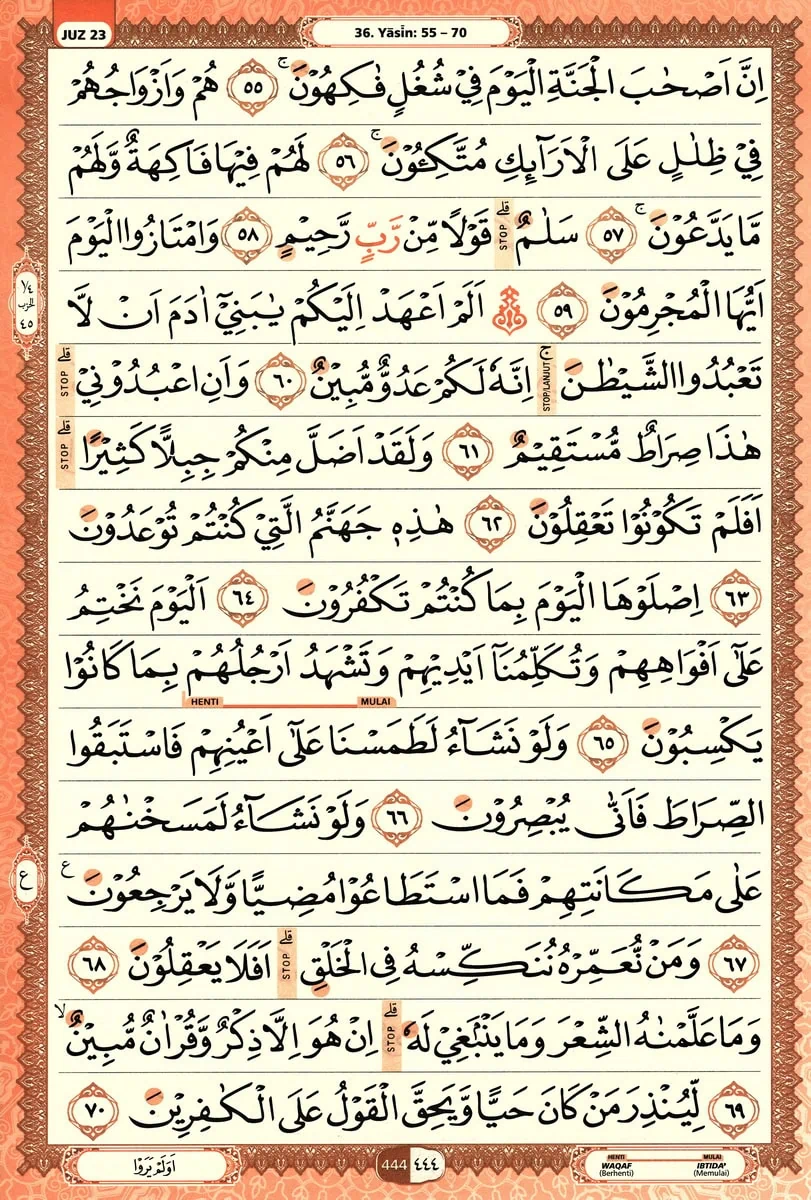 JUZ 23
36. Yāsīn: 55 – 70
اِنَّ اَصْحٰبَ الْجَنَّةِ الْيَوْمَ فِيْ شُغُلٍ فٰكِهُوْنَ ۚ ٥٥ هُمْ وَاَزْوَاجُهُمْ
فِيْ ظِلٰلٍ عَلَى الْاَرَاۤىِٕكِ مُتَّكِـُٔوْنَ ۚ ٥٦ لَهُمْ فِيْهَا فَاكِهَةٌ وَّلَهُمْ
مَّا يَدَّعُوْنَ ۚ ٥٧ سَلٰمٌ ۗ STOP قَوْلًا مِّنْ رَّبٍّ رَّحِيْمٍ ٥٨ وَامْتَازُوا الْيَوْمَ
اَيُّهَا الْمُجْرِمُوْنَ ٥٩ ۞ اَلَمْ اَعْهَدْ اِلَيْكُمْ يٰبَنِيْٓ اٰدَمَ اَنْ لَّا
¼ الحزب ٤٥
تَعْبُدُوا الشَّيْطٰنَ ۚ STOP/LANJUT اِنَّهٗ لَكُمْ عَدُوٌّ مُّبِيْنٌ ٦٠ وَاَنِ اعْبُدُوْنِيْ ۗ STOP
هٰذَا صِرَاطٌ مُّسْتَقِيْمٌ ٦١ وَلَقَدْ اَضَلَّ مِنْكُمْ جِبِلًّا كَثِيْرًا ۗ STOP
اَفَلَمْ تَكُوْنُوْا تَعْقِلُوْنَ ٦٢ هٰذِهٖ جَهَنَّمُ الَّتِيْ كُنْتُمْ تُوْعَدُوْنَ
٦٣ اِصْلَوْهَا الْيَوْمَ بِمَا كُنْتُمْ تَكْفُرُوْنَ ٦٤ اَلْيَوْمَ نَخْتِمُ
عَلٰٓى اَفْوَاهِهِمْ وَتُكَلِّمُنَآ اَيْدِيْهِمْ وَتَشْهَدُ اَرْجُلُهُمْ بِمَا كَانُوْا
HENTI MULAI
يَكْسِبُوْنَ ٦٥ وَلَوْ نَشَاۤءُ لَطَمَسْنَا عَلٰٓى اَعْيُنِهِمْ فَاسْتَبَقُوا
الصِّرَاطَ فَاَنّٰى يُبْصِرُوْنَ ٦٦ وَلَوْ نَشَاۤءُ لَمَسَخْنٰهُمْ
عَلٰى مَكَانَتِهِمْ فَمَا اسْتَطَاعُوْا مُضِيًّا وَّلَا يَرْجِعُوْنَ ࣖ
ع
٦٧ وَمَنْ نُّعَمِّرْهُ نُنَكِّسْهُ فِى الْخَلْقِ ۗ STOP اَفَلَا يَعْقِلُوْنَ ٦٨
وَمَا عَلَّمْنٰهُ الشِّعْرَ وَمَا يَنْۢبَغِيْ لَهٗ ۗ STOP اِنْ هُوَ اِلَّا ذِكْرٌ وَّقُرْاٰنٌ مُّبِيْنٌ ۙ
٦٩ لِّيُنْذِرَ مَنْ كَانَ حَيًّا وَّيَحِقَّ الْقَوْلُ عَلَى الْكٰفِرِيْنَ ٧٠
اَوَلَمْ يَرَوْا
444 ٤٤٤
HENTI MULAI
WAQAF IBTIDA'
(Berhenti) (Memulai)